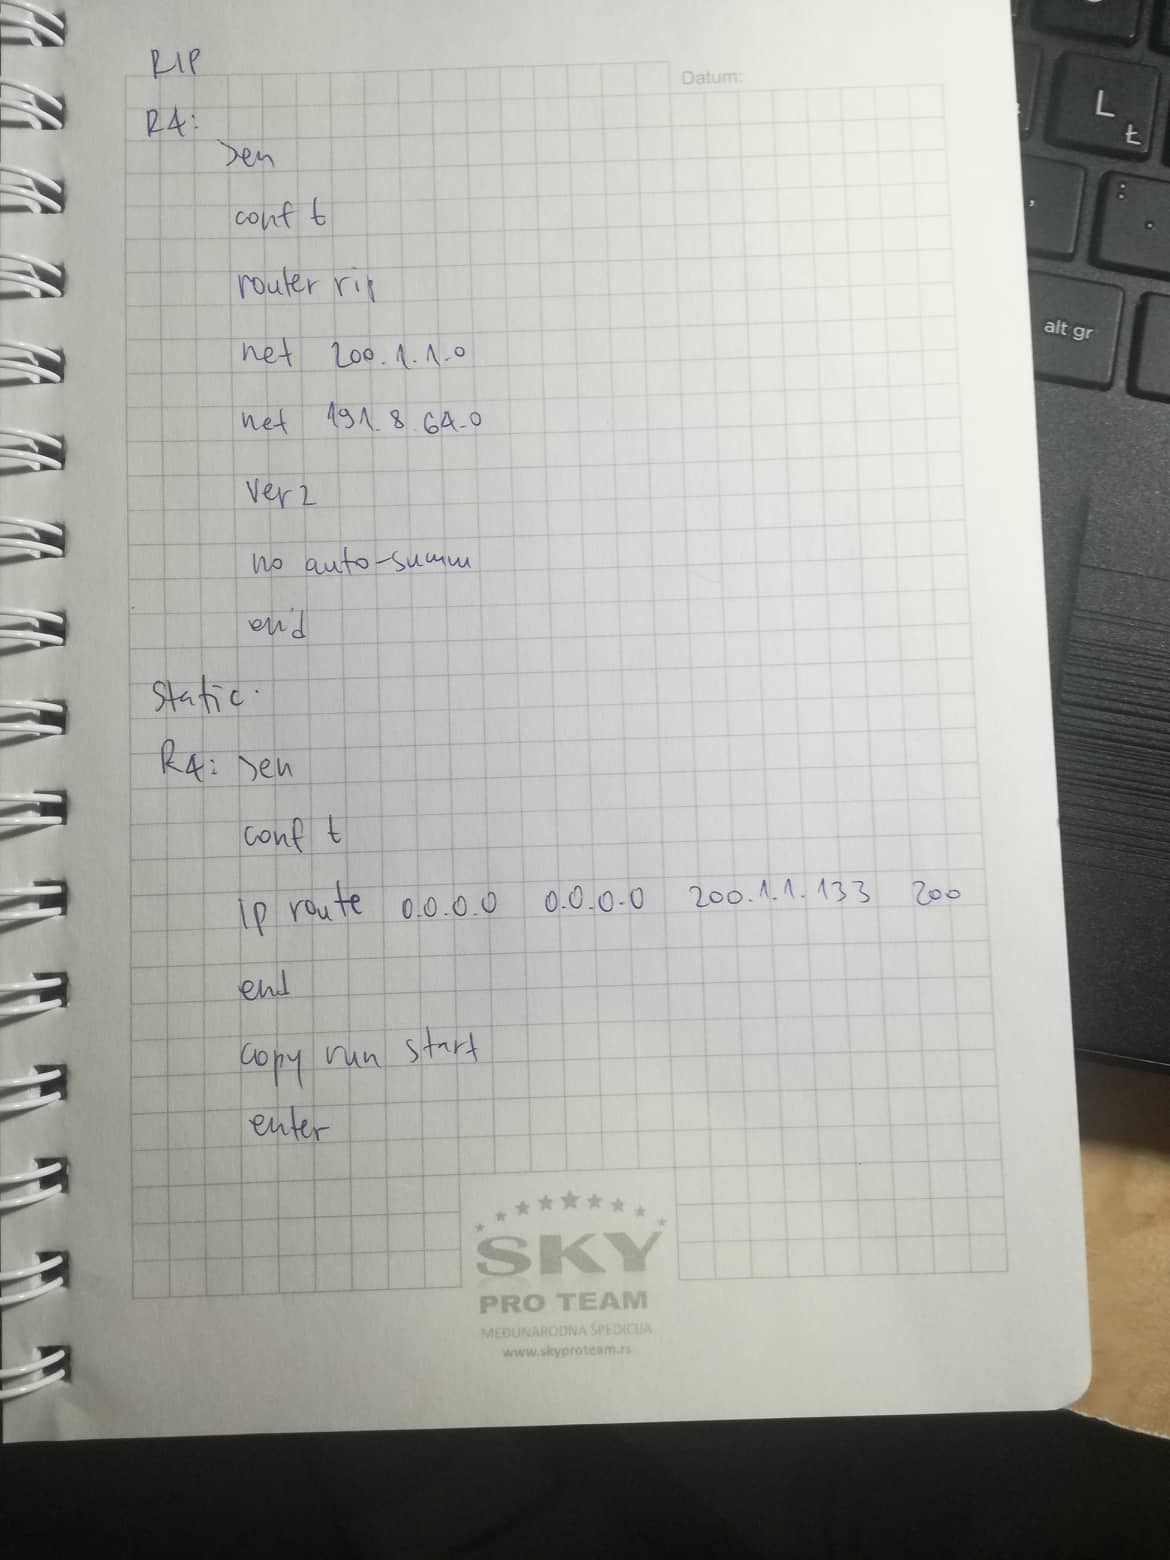 RIP
Datum:
R4:
>en
conf t
router rip
net 200.1.1.0
net 191.8.64.0
ver 2
no auto-summ
end
Static:
R4: >en
conf t
ip route 0.0.0.0 0.0.0.0 200.1.1.133 200
end
copy run start
enter
SKY
PRO TEAM
MEĐUNARODNA ŠPEDICIJA
www.skyproteam.rs
L
Ł
:
.
,
alt gr